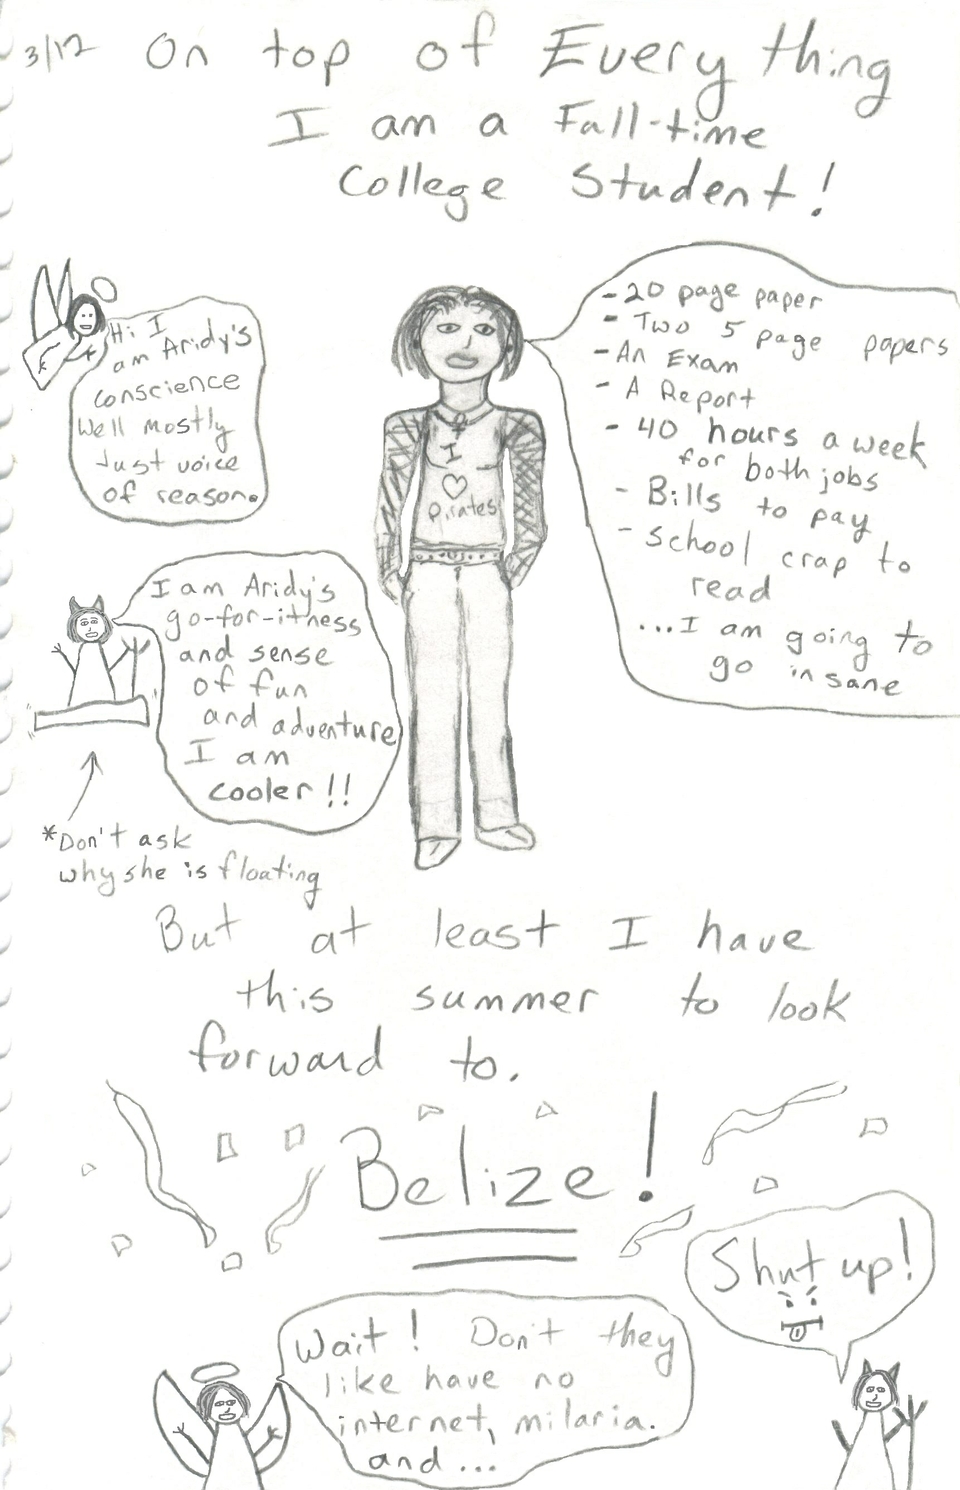 3/12 On top of Everything
I am a Full-time
College Student!
Hi I
am Aridy's
conscience
Well mostly
Just voice
of reason.
I
♡
Pirates
-20 page paper
- Two 5 page papers
-An Exam
- A Report
- 40 hours a week
for both jobs
- Bills to pay
- School crap to
read
...I am going to
go insane
I am Aridy's
go-for-itness
and sense
of fun
and adventure
I am
cooler!!
*Don't ask
why she is floating
But at least I have
this summer to look
forward to.
Belize!
Shut up!
Wait! Don't they
like have no
internet, milaria.
and...